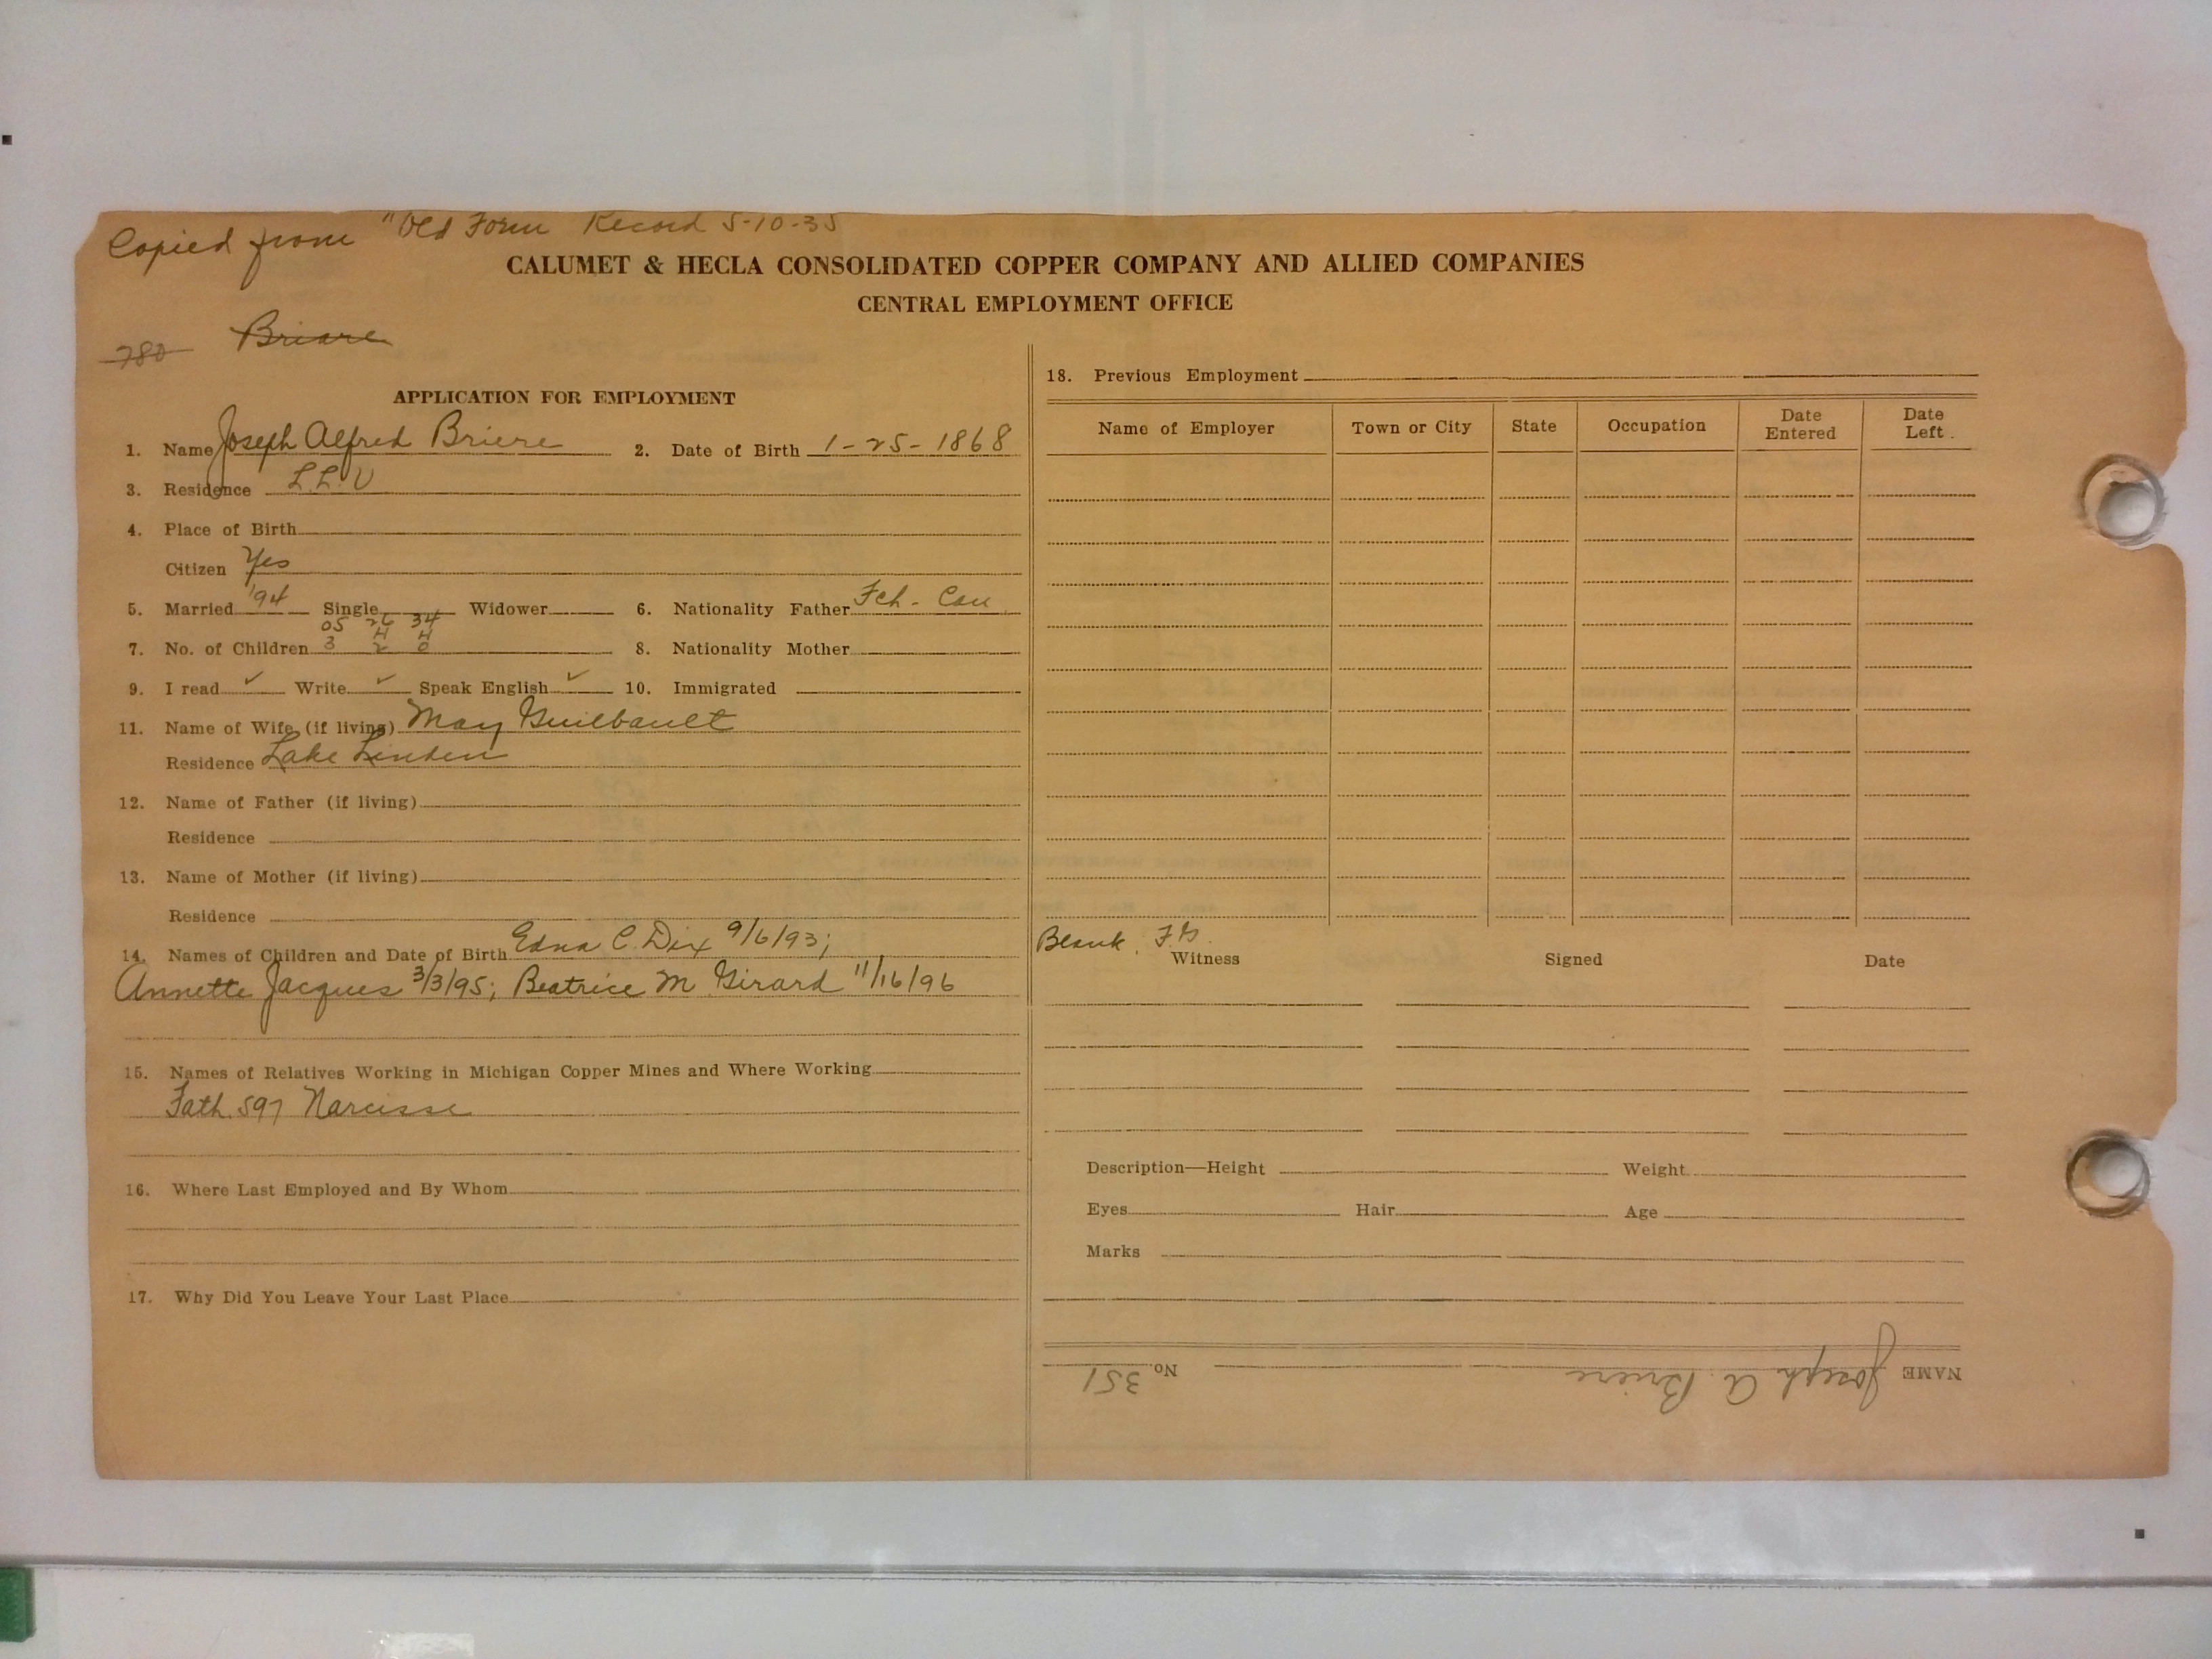 Copied from "Old Form Record 5-10-35
CALUMET & HECLA CONSOLIDATED COPPER COMPANY AND ALLIED COMPANIES
CENTRAL EMPLOYMENT OFFICE
780 Briare
APPLICATION FOR EMPLOYMENT
1. Name Joseph Alfred Briere 2. Date of Birth 1-25-1868
3. Residence L.L.V
4. Place of Birth
Citizen Yes
5. Married '94 Single Widower 6. Nationality Father Fch-Can
05 26 34
H H
7. No. of Children 3 2 0 8. Nationality Mother
9. I read ✓ Write ✓ Speak English ✓ 10. Immigrated
11. Name of Wife (if living) May Guilbault
Residence Lake Linden
12. Name of Father (if living)
Residence
13. Name of Mother (if living)
Residence
14. Names of Children and Date of Birth Edna C. Dix 9/6/93;
Annette Jacques 3/3/95; Beatrice M Girard 11/16/96
15. Names of Relatives Working in Michigan Copper Mines and Where Working
Fath. 597 Narcisse
16. Where Last Employed and By Whom
17. Why Did You Leave Your Last Place
18. Previous Employment
Name of Employer Town or City State Occupation Date Entered Date Left
Blank. F.G.
Witness Signed Date
Description—Height Weight
Eyes Hair Age
Marks
NAME Joseph A. Briere No. 351